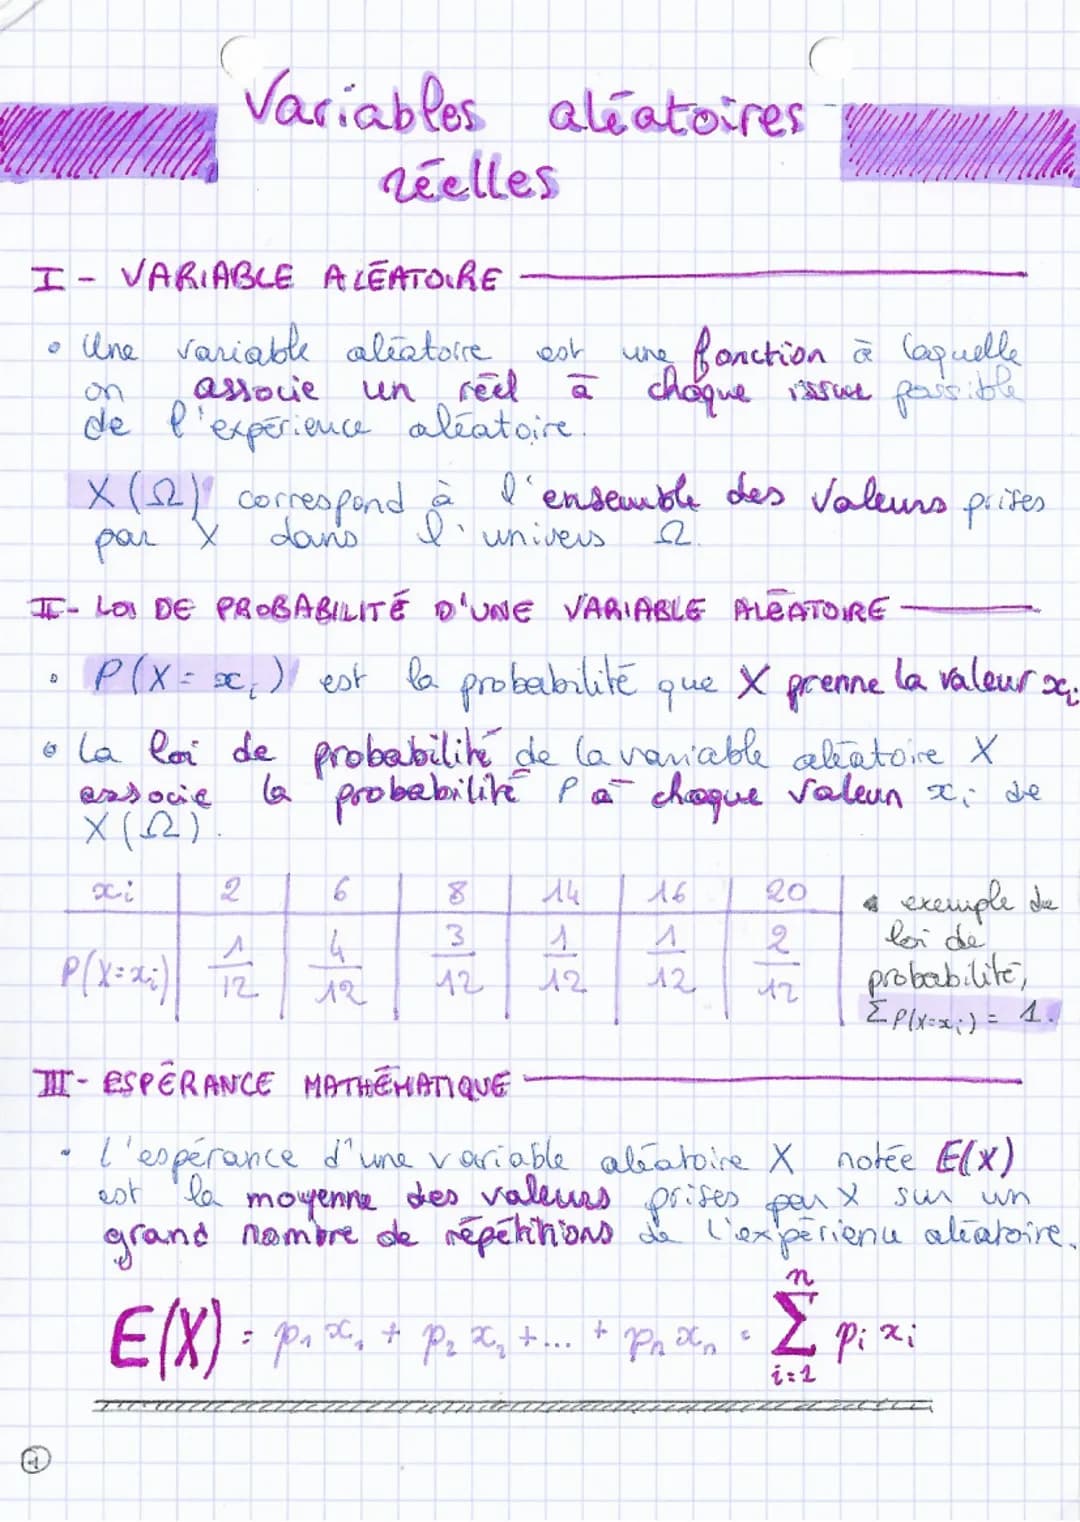 Variables aléatoires
réelles
I - VARIABLE ALÉATOIRE
• Une variable aléatoire est une fonction à laquelle
on associe un réel à chaque issue possible
de l'expérience aléatoire.
X(Ω) correspond à l'ensemble des valeurs prises
par X dans l'univers Ω.
II - LOI DE PROBABILITÉ D'UNE VARIABLE ALÉATOIRE
• P(X = xᵢ) est la probabilité que X prenne la valeur xᵢ
• La loi de probabilité de la variable aléatoire X
associe la probabilité P à chaque valeur xᵢ de
X(Ω).
xi 2 6 8 14 16 20
P(X=xᵢ) 1/12 4/12 3/12 1/12 1/12 2/12
exemple de
loi de
probabilité,
Σ P(X=xᵢ) = 1.
III - ESPÉRANCE MATHÉMATIQUE
• L'espérance d'une variable aléatoire X notée E(X)
est la moyenne des valeurs prises par X sur un
grand nombre de répétitions de l'expérience aléatoire.
E(X) = p₁x₁ + p₂x₂ + ... + pₙxₙ = Σⁿᵢ₌₁ pᵢxᵢ
1